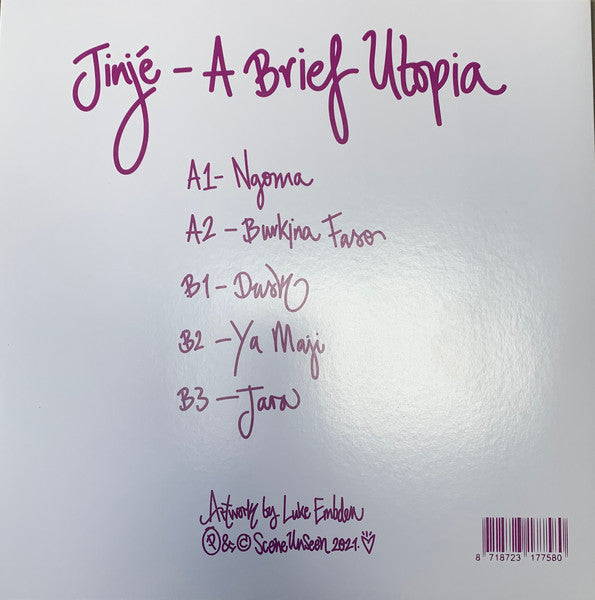 Jinjé - A Brief Utopia
A1- Ngoma
A2 - Burkina Faso
B1 - Dusk
B2 - Ya Maji
B3 - Jara
Artwork by Luke Embden
Ⓟ & © Scene Unseen 2021.
8 718723 177580